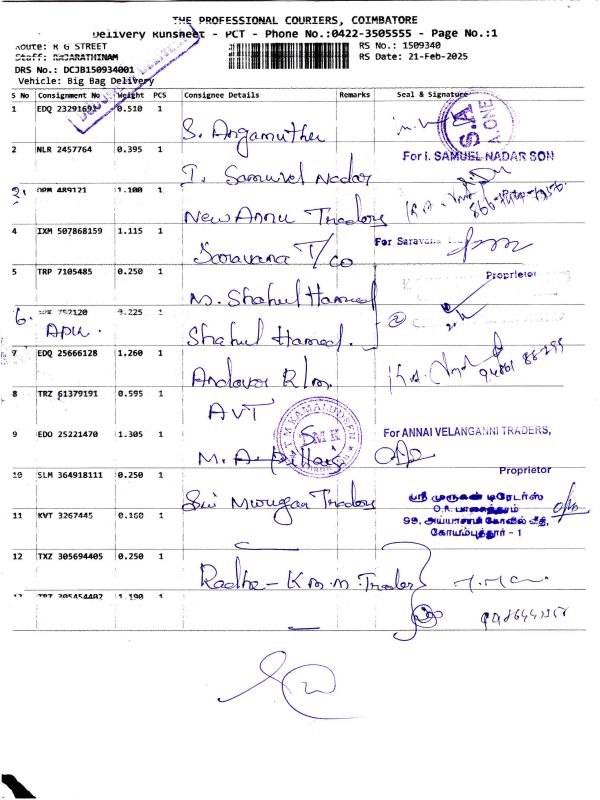 THE PROFESSIONAL COURIERS, COIMBATORE
Delivery Runsheet - PCT - Phone No.:0422-3505555 - Page No.:1
Route: R G STREET
RS No.: 1509340
Staff: RAJARATHINAM
RS Date: 21-Feb-2025
DRS No.: DCJB150934001
Vehicle: Big Bag Delivery
S No Consignment No Weight PCS Consignee Details Remarks Seal & Signature
1 EDQ 23291692 0.510 1 S. Angamuthu
S.A
A.ONE
2 NLR 2457764 0.395 1 T. Samuvel Nadar
For i. SAMUEL NADAR SON
3. 489121 1.100 1 New Annu Traders
4 IXM 507868159 1.115 1 Saravana T/Co
For Saravana
5 TRP 7105485 0.250 1 M. Shahul Hameed
Proprietor
6. 752120 0.225 1 Shahul Hamed.
7 EDQ 25666128 1.260 1 Andavar R/m.
8 TRZ 61379191 0.595 1 AVT
T M KAMALUDEEN
S M K
9 EDO 25221470 1.305 1 M. A. Pillai
For ANNAI VELANGANNI TRADERS,
Proprietor
10 SLM 364918111 0.250 1 Sri Murugan Traders
ஸ்ரீ முருகன் டிரேடர்ஸ்
99, அய்யாசாமி கோவில் வீதி,
கோயம்புத்தூர் - 1
11 KVT 3267445 0.160 1
12 TXZ 305694405 0.250 1 Radha - K.M.M. Trader
13 305454402 1.190 1